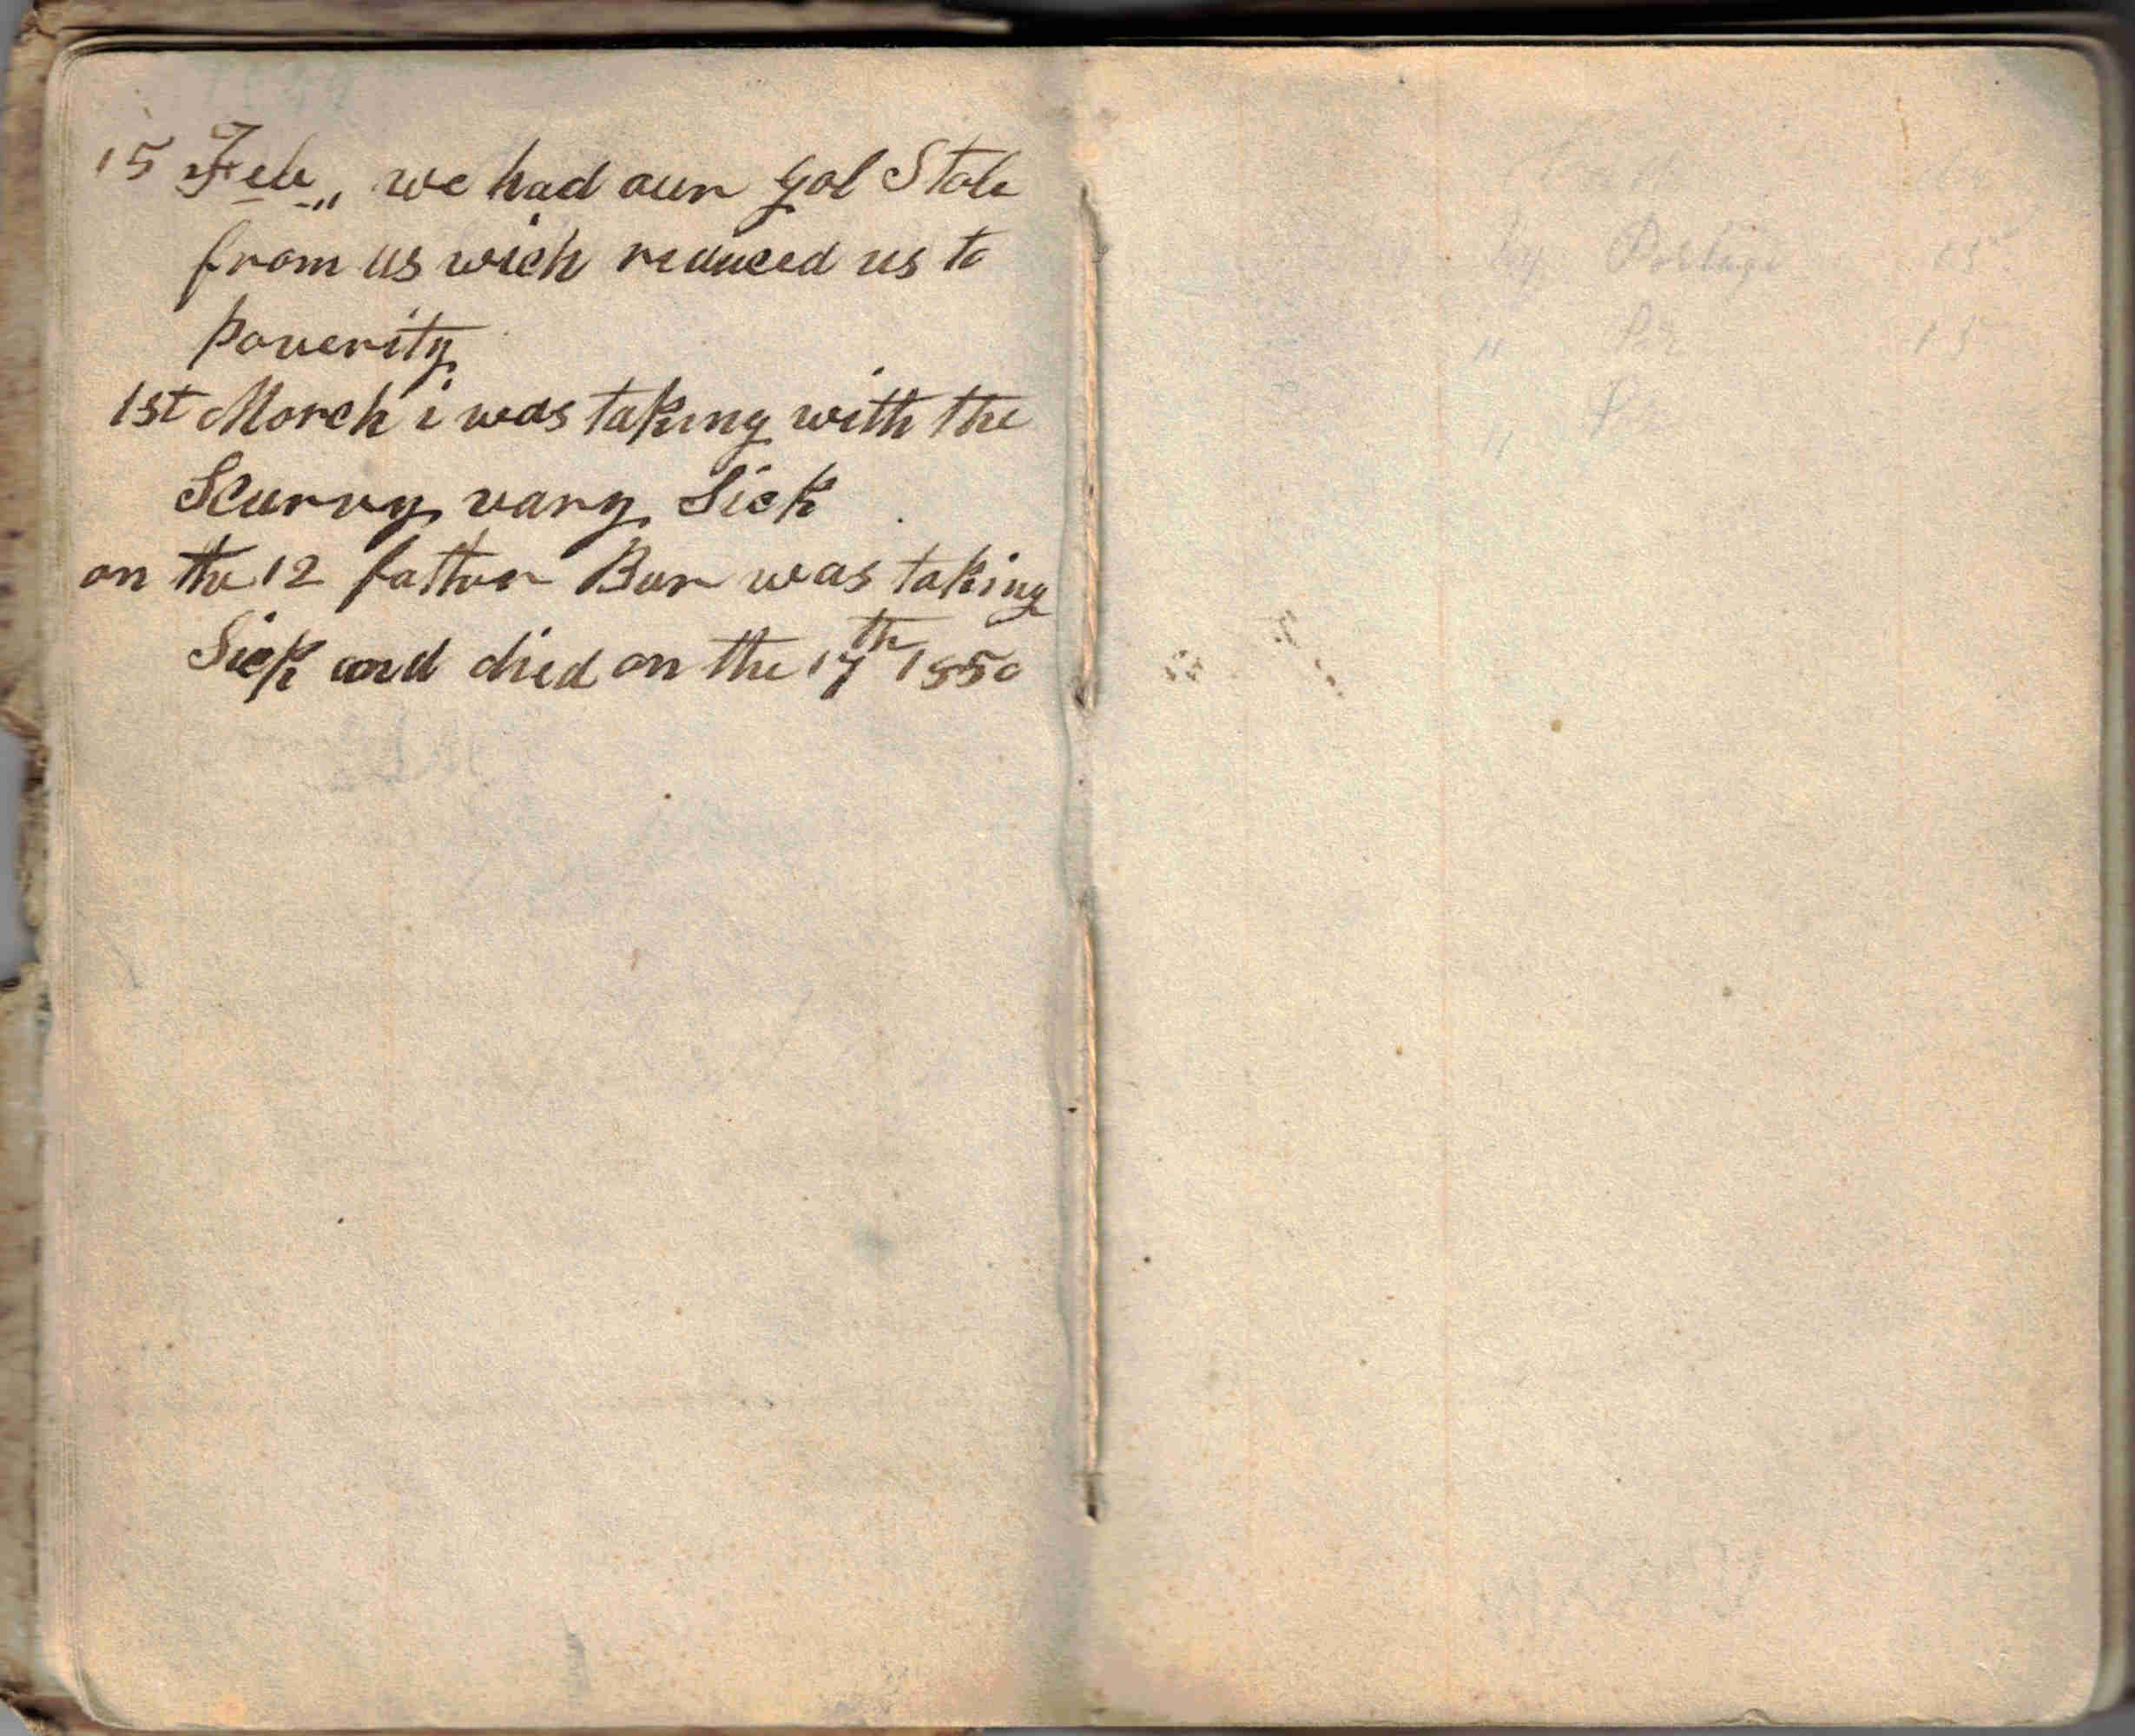 15 Feb,, we had our gol Stole
from us wich reduced us to
poverity
1st March i was taking with the
Scurvy vary Sick
on the 12 father Bur was taking
Sick and died on the 17th 1850
by Postage
"
"